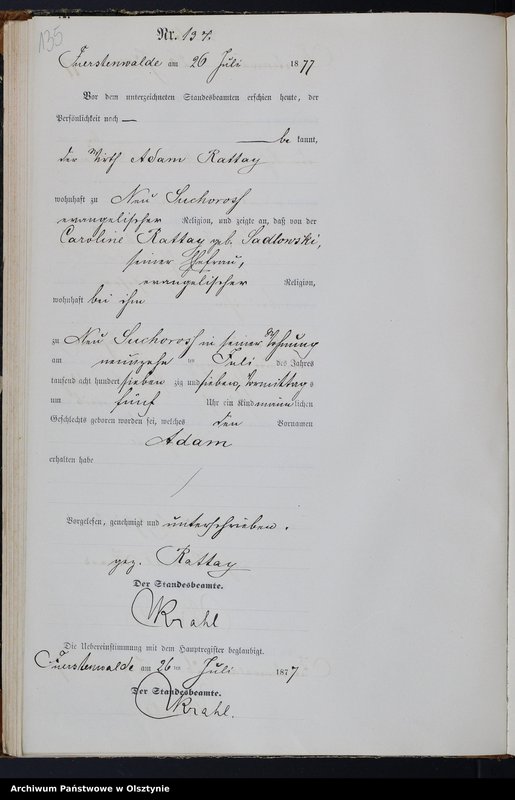 135
Nr. 137.
Fuerstenwalde am 26 Juli 1877
Vor dem unterzeichneten Standesbeamten erschien heute, der
Persönlichkeit nach —
— be kannt,
der Wirth Adam Rattay
wohnhaft zu Neu Suchorosh
evangelischer Religion, und zeigte an, daß von der
Caroline Rattay geb. Sadlowski,
seiner Ehefrau,
evangelischer Religion,
wohnhaft bei ihm
zu Neu Suchorosh in seiner Wohnung
am neunzehn ten Juli des Jahres
tausend acht hundert sieben zig und sieben, Vormittags
um fünf Uhr ein Kind männlichen
Geschlechts geboren worden sei, welches den Vornamen
Adam
erhalten habe
Vorgelesen, genehmigt und unterschrieben.
gez. Rattay
Der Standesbeamte.
Krahl
Die Uebereinstimmung mit dem Hauptregister beglaubigt.
Fuerstenwalde am 26 ten Juli 1877
Der Standesbeamte.
Krahl.
Archiwum Państwowe w Olsztynie